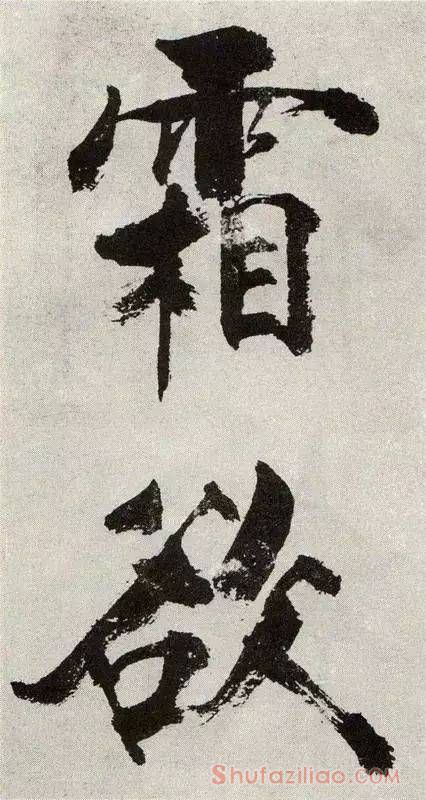 霜
欲
Shufaziliao.com